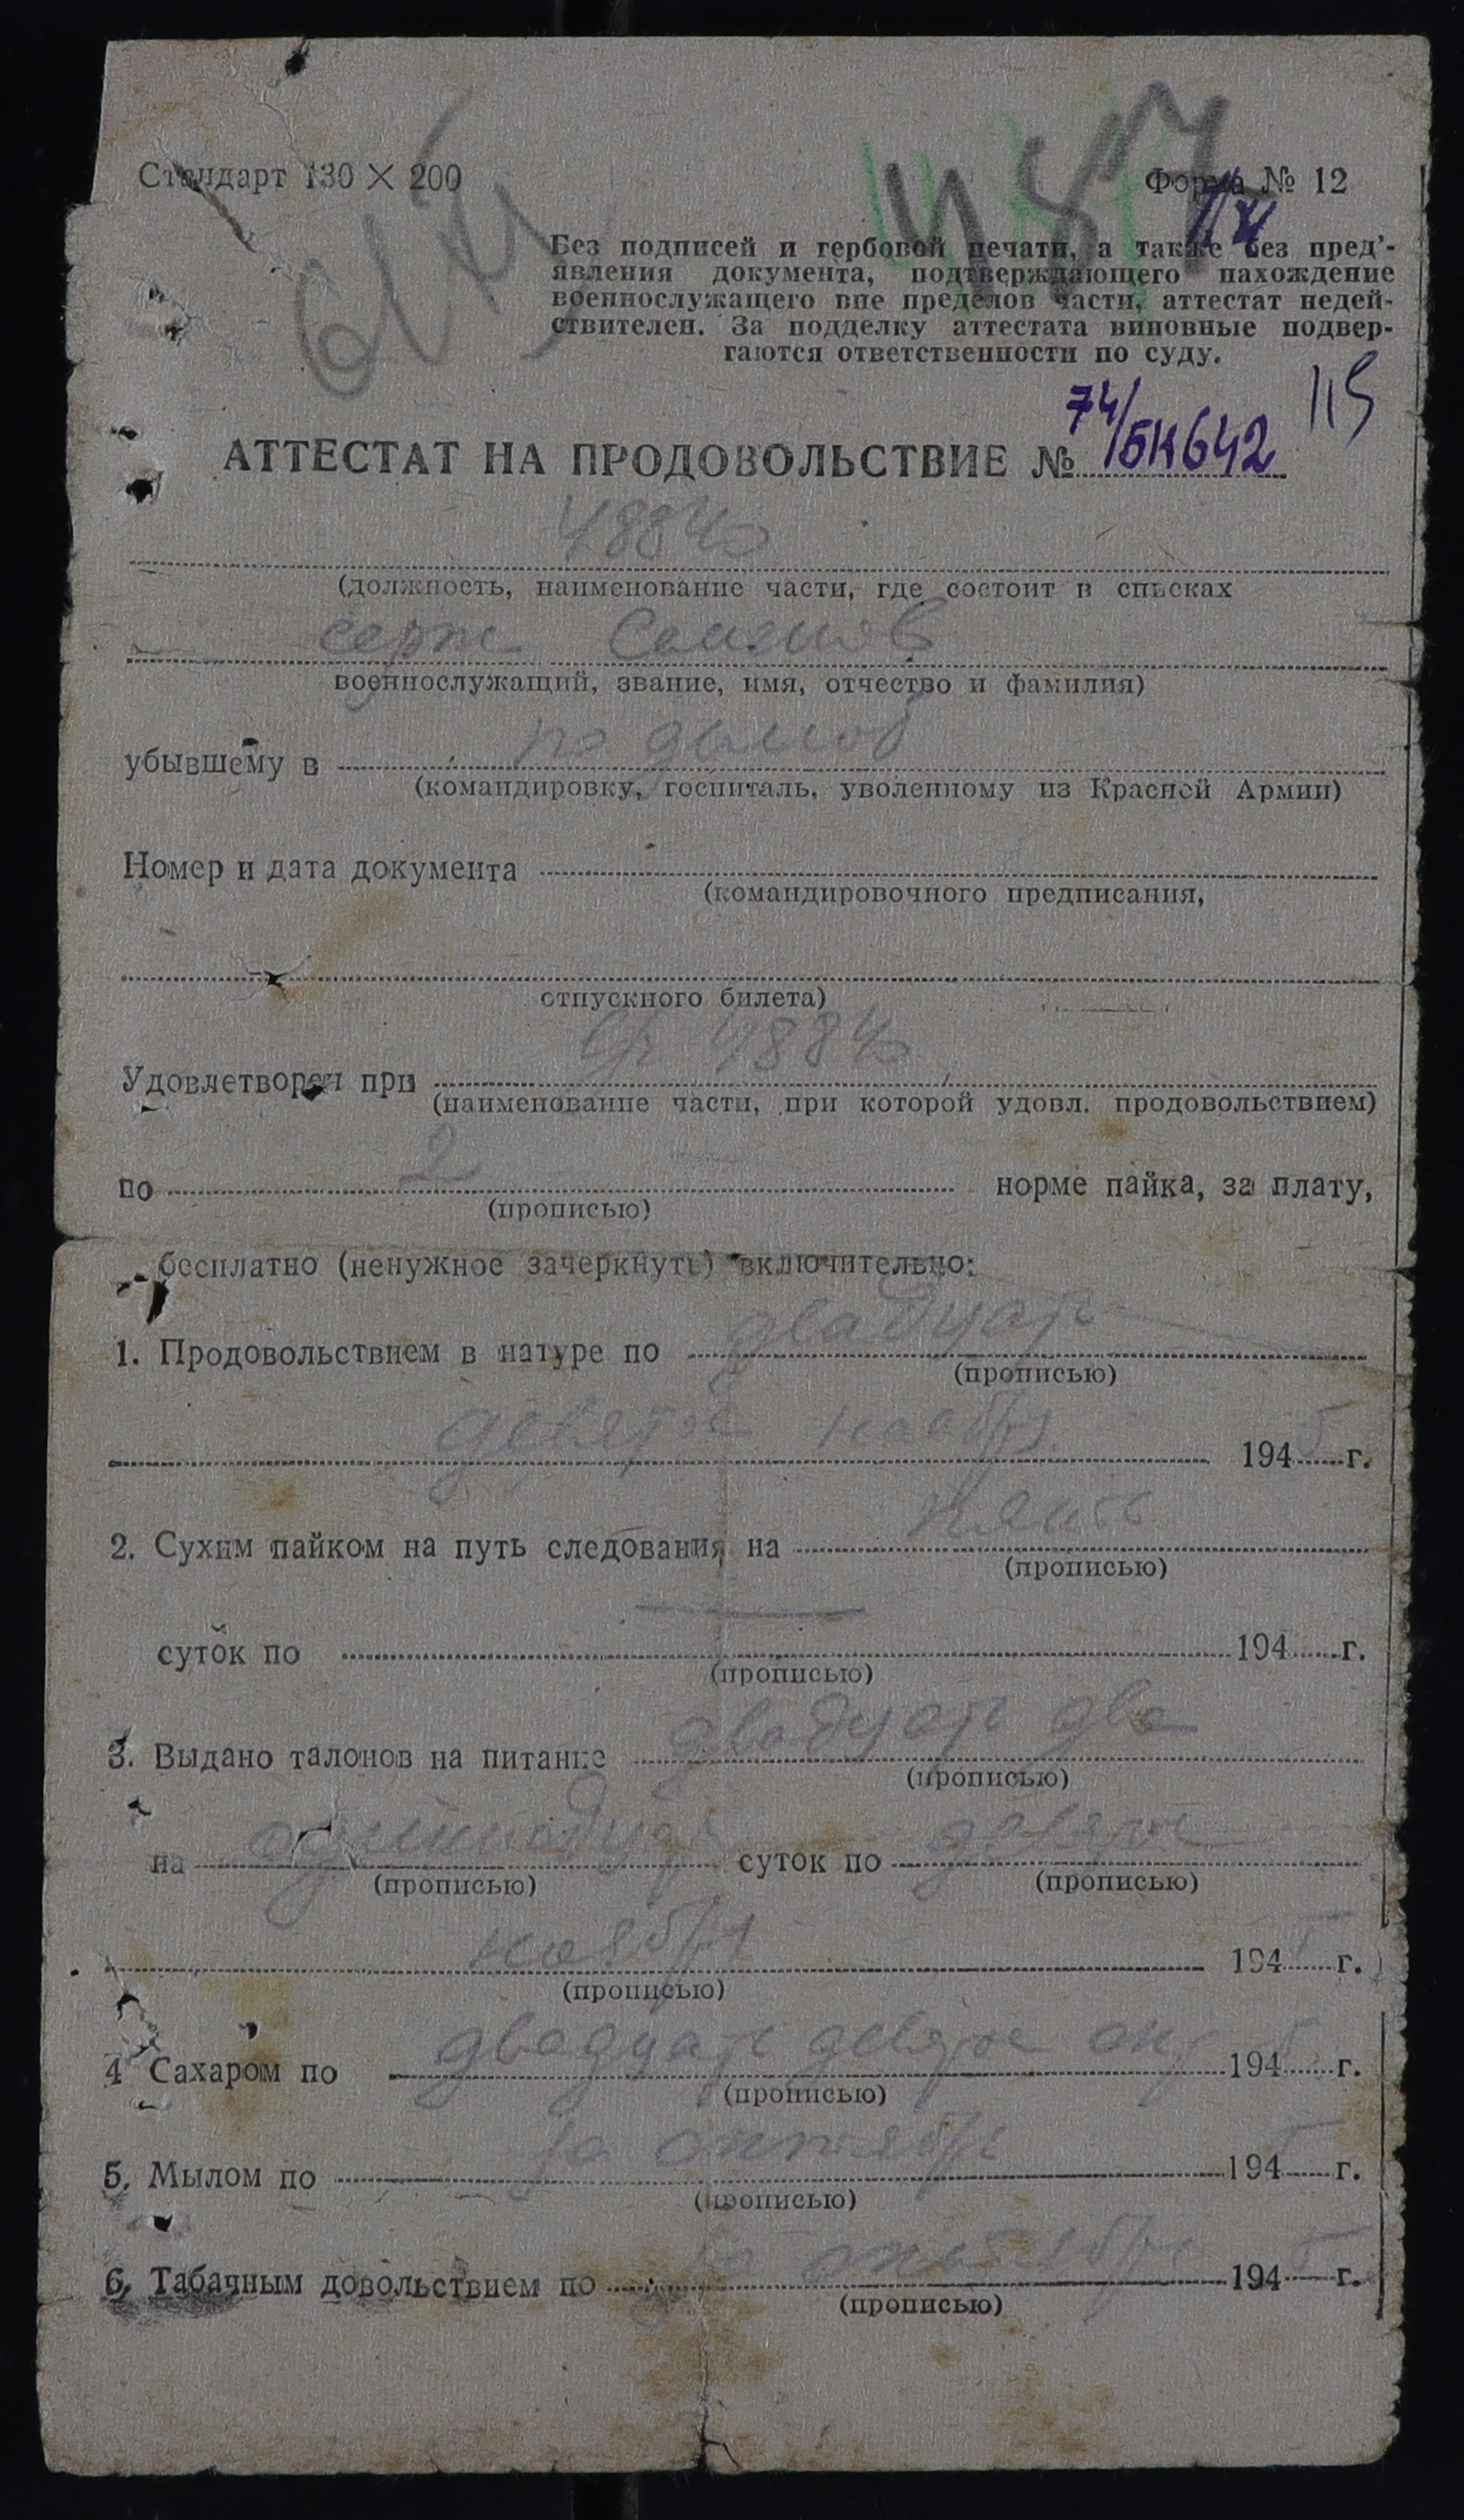 Стандарт 130 × 200
Форма № 12
Без подписей и гербовой печати, а также без пред'-
явления документа, подтверждающего нахождение
военнослужащего вне пределов части, аттестат недей-
ствителен. За подделку аттестата виновные подвер-
гаются ответственности по суду.
115
74/БК642
АТТЕСТАТ НА ПРОДОВОЛЬСТВИЕ №
(должность, наименование части, где состоит в списках
серж
военнослужащий, звание, имя, отчество и фамилия)
убывшему в по демоб
(командировку, госпиталь, уволенному из Красной Армии)
Номер и дата документа
(командировочного предписания,
отпускного билета)
Удовлетворен при
(наименование части, при которой удовл. продовольствием)
по 2 норме пайка, за плату,
(прописью)
бесплатно (ненужное зачеркнуть) включительно:
1. Продовольствием в натуре по двадцать
(прописью)
девятое ноября 1945 г.
2. Сухим пайком на путь следования на
(прописью)
суток по — 194 г.
(прописью)
3. Выдано талонов на питание двадцать два
(прописью)
на одиннадцать суток по девятое
(прописью) (прописью)
ноября 1945 г.
(прописью)
4 Сахаром по двадцать девятое окт 1945 г.
(прописью)
5. Мылом по за октябрь 1945 г.
(прописью)
6. Табачным довольствием по за октябрь 1945 г.
(прописью)